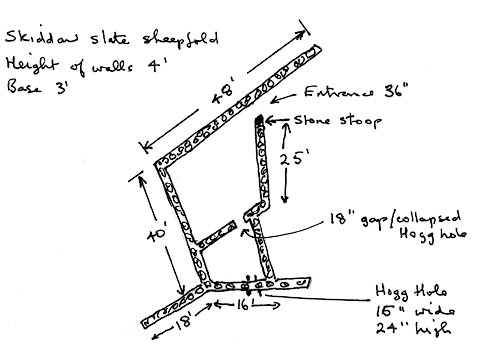 Skiddaw slate sheepfold
Height of walls 4'
Base 3'
48'
Entrance 36"
Stone stoop
25'
40'
18" gap/collapsed
Hogg hole
Hogg Hole
15" wide
24" high
18'
16'